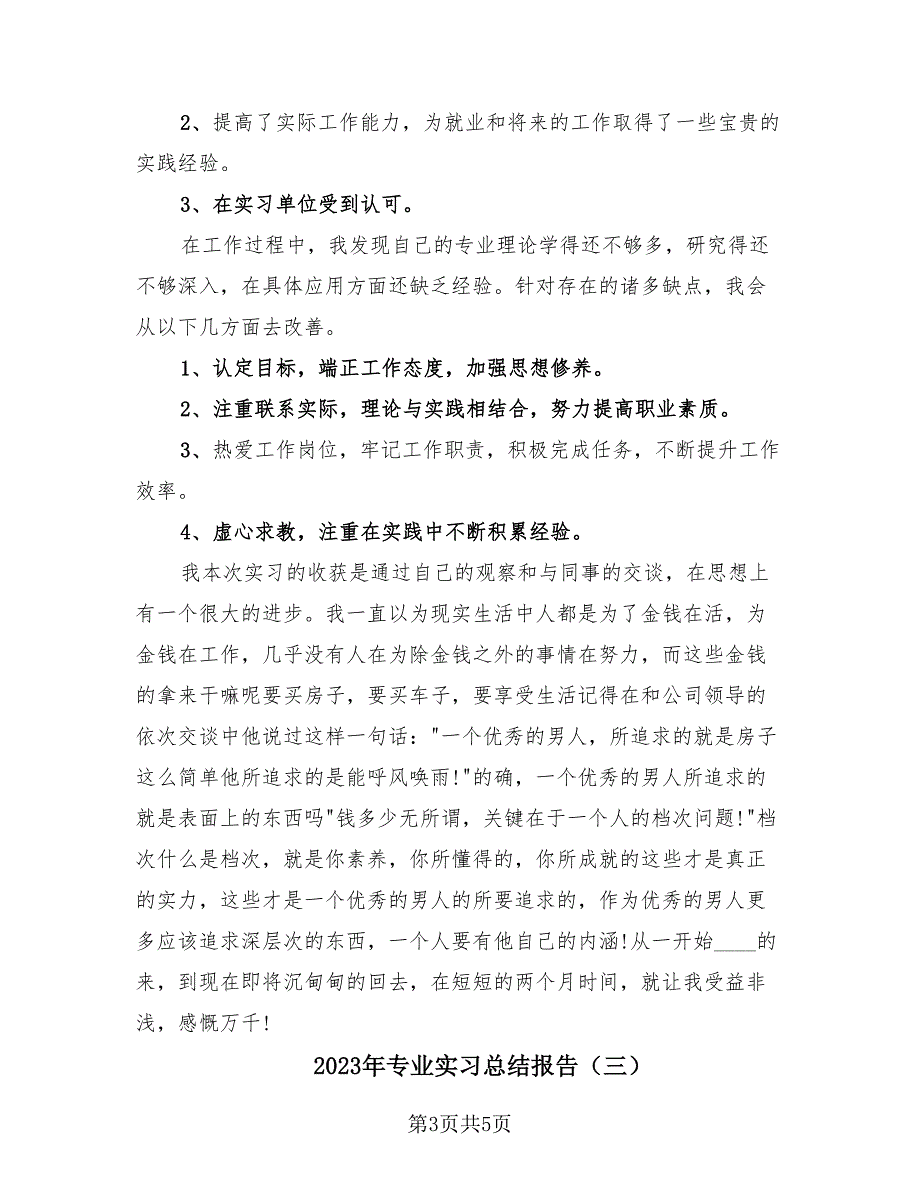 2、提高了实际工作能力，为就业和将来的工作取得了一些宝贵的
实践经验。
3、在实习单位受到认可。
在工作过程中，我发现自己的专业理论学得还不够多，研究得还
不够深入，在具体应用方面还缺乏经验。针对存在的诸多缺点，我会
从以下几方面去改善。
1、认定目标，端正工作态度，加强思想修养。
2、注重联系实际，理论与实践相结合，努力提高职业素质。
3、热爱工作岗位，牢记工作职责，积极完成任务，不断提升工作
效率。
4、虚心求教，注重在实践中不断积累经验。
我本次实习的收获是通过自己的观察和与同事的交谈，在思想上
有一个很大的进步。我一直以为现实生活中人都是为了金钱在活，为
金钱在工作，几乎没有人在为除金钱之外的事情在努力，而这些金钱
的拿来干嘛呢要买房子，要买车子，要享受生活记得在和公司领导的
依次交谈中他说过这样一句话："一个优秀的男人，所追求的就是房子
这么简单他所追求的是能呼风唤雨!"的确，一个优秀的男人所追求的
就是表面上的东西吗"钱多少无所谓，关键在于一个人的档次问题!"档
次什么是档次，就是你素养，你所懂得的，你所成就的这些才是真正
的实力，这些才是一个优秀的男人的所要追求的，作为优秀的男人更
多应该追求深层次的东西，一个人要有他自己的内涵!从一开始____的
来，到现在即将沉甸甸的回去，在短短的两个月时间，就让我受益非
浅，感慨万千!
2023年专业实习总结报告（三）
第3页共5页